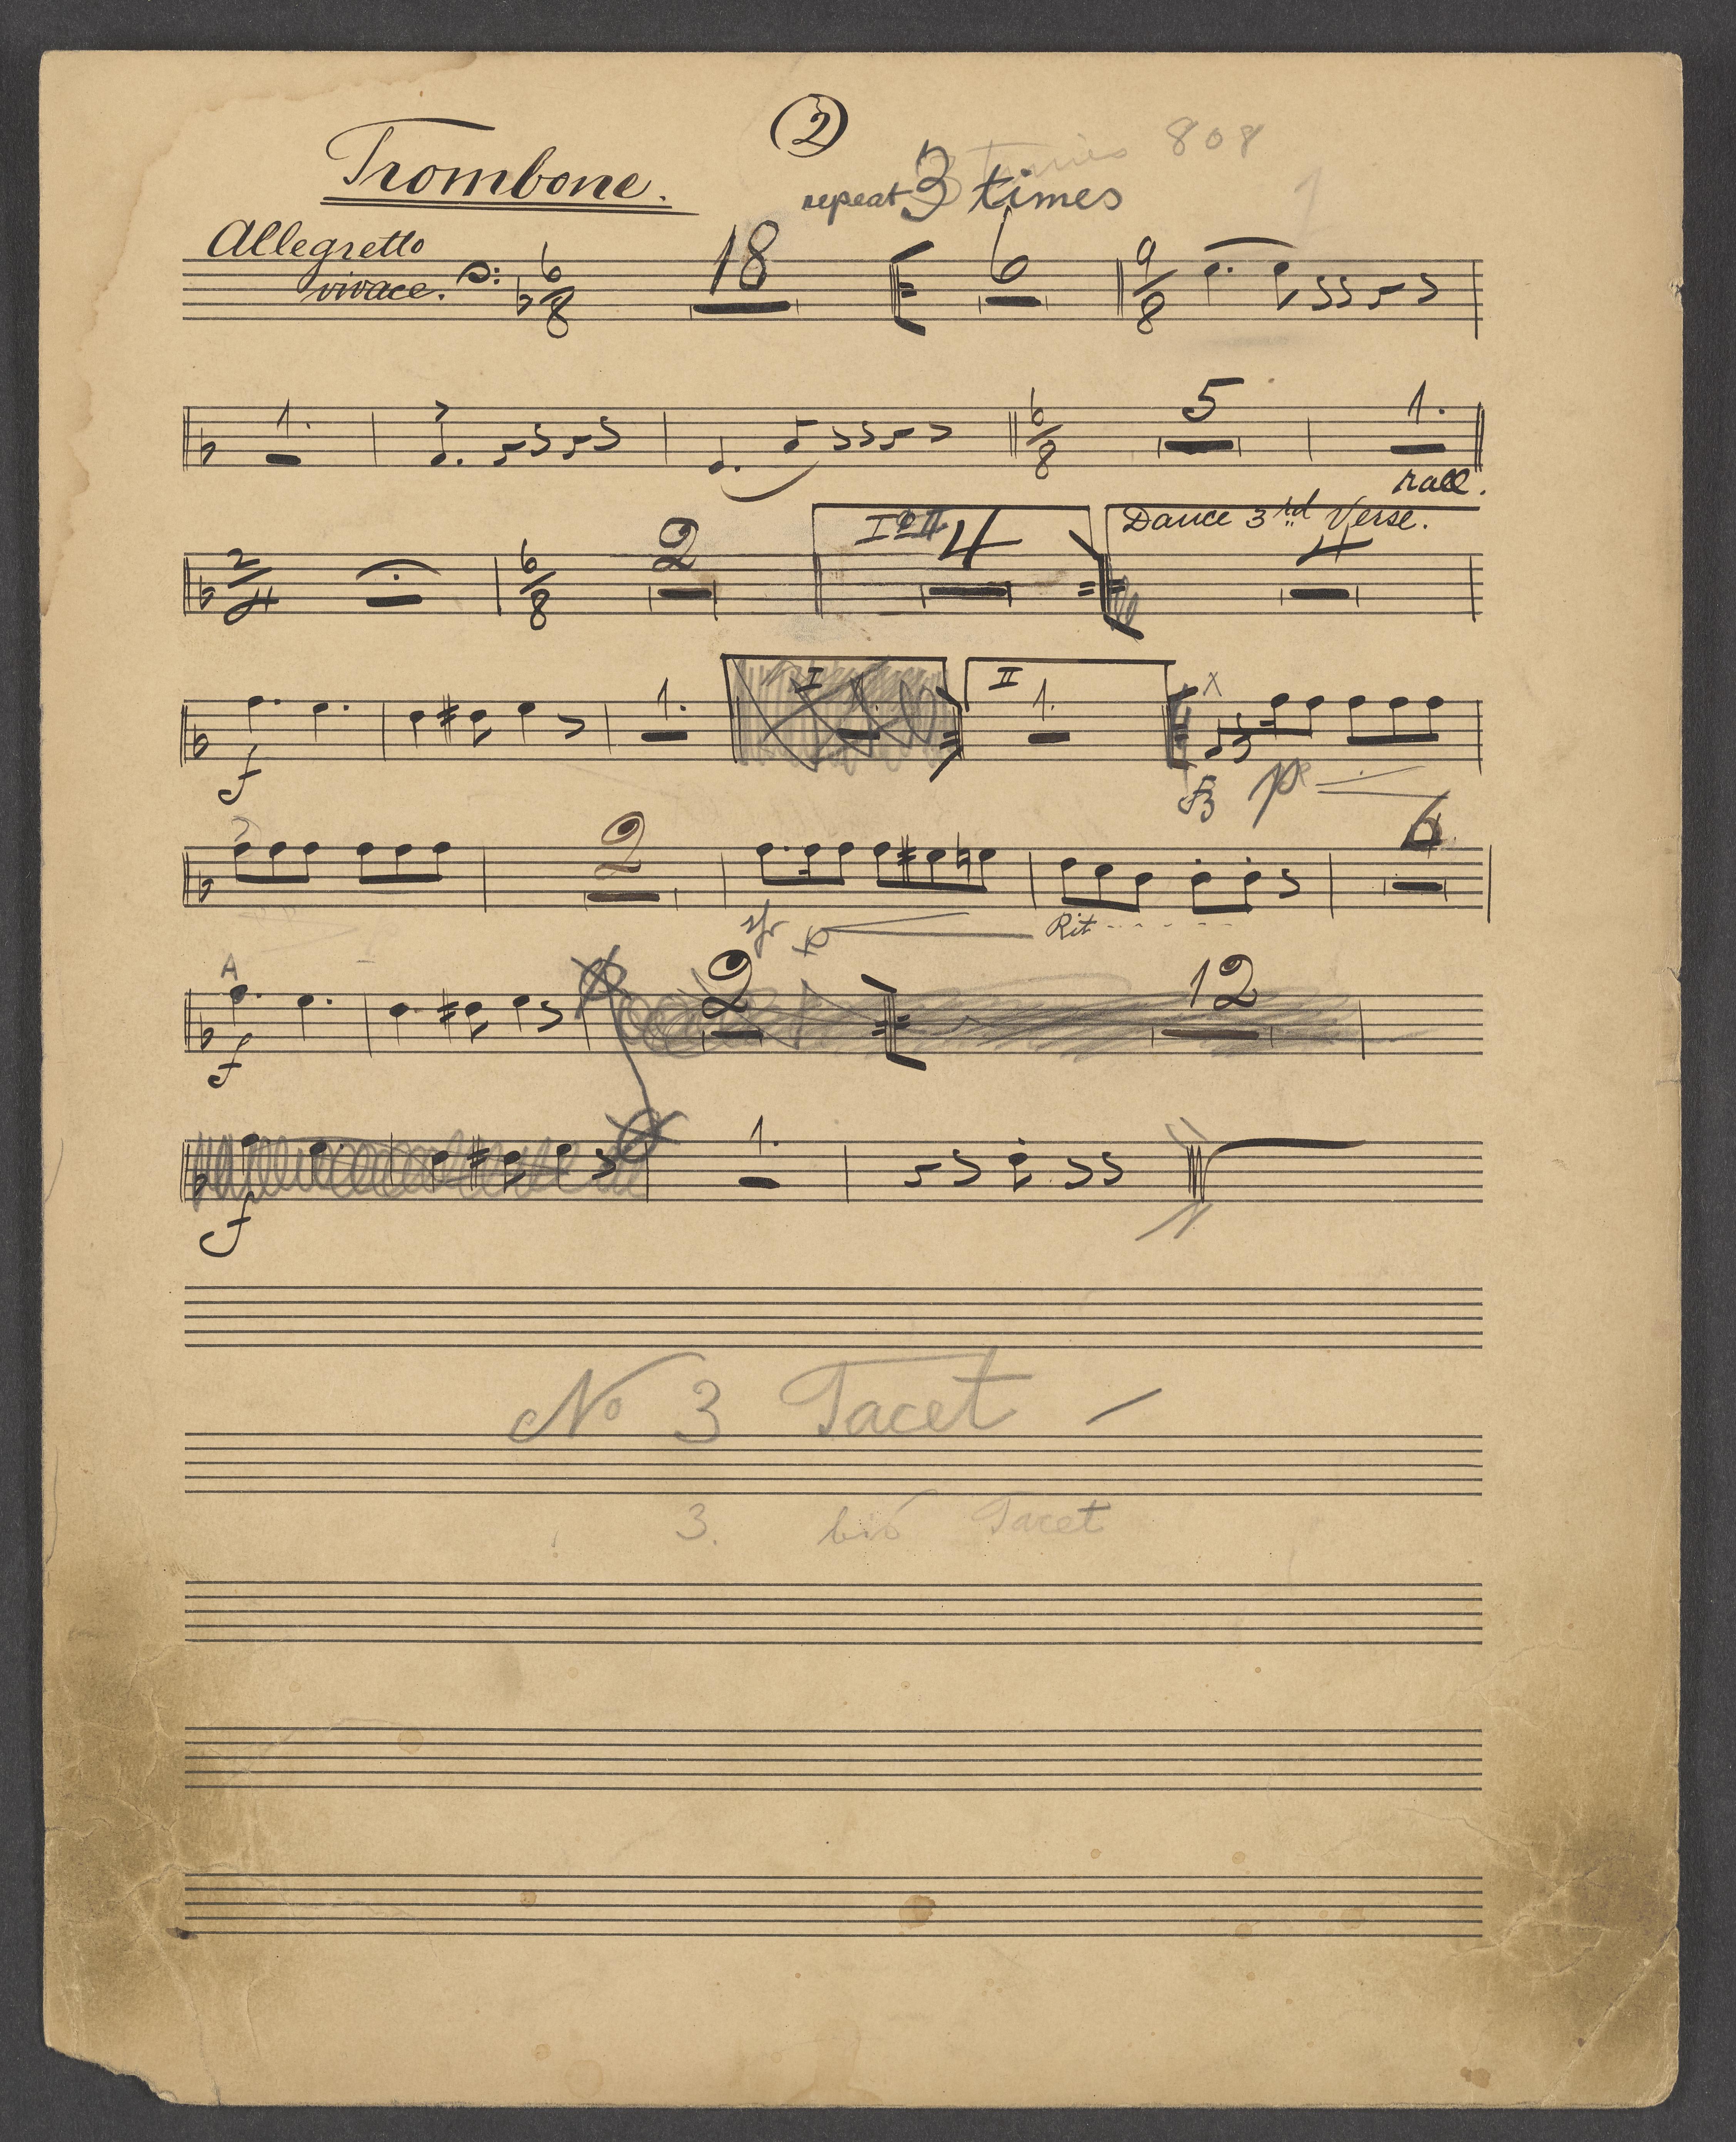 2
Trombone.
3 times 808
repeat 3 times
Allegretto
vivace.
6/8 18 6 9/8
1. 6/8 5 1.
rall.
I o II 4 Dance 3rd Verse.
2/4 6/8 2 4
I II
1. 1. 1.
f p
2 6
sfz p Rit - - - -
A
2 12
f
1.
f
No 3 Tacet —
3. bis Tacet